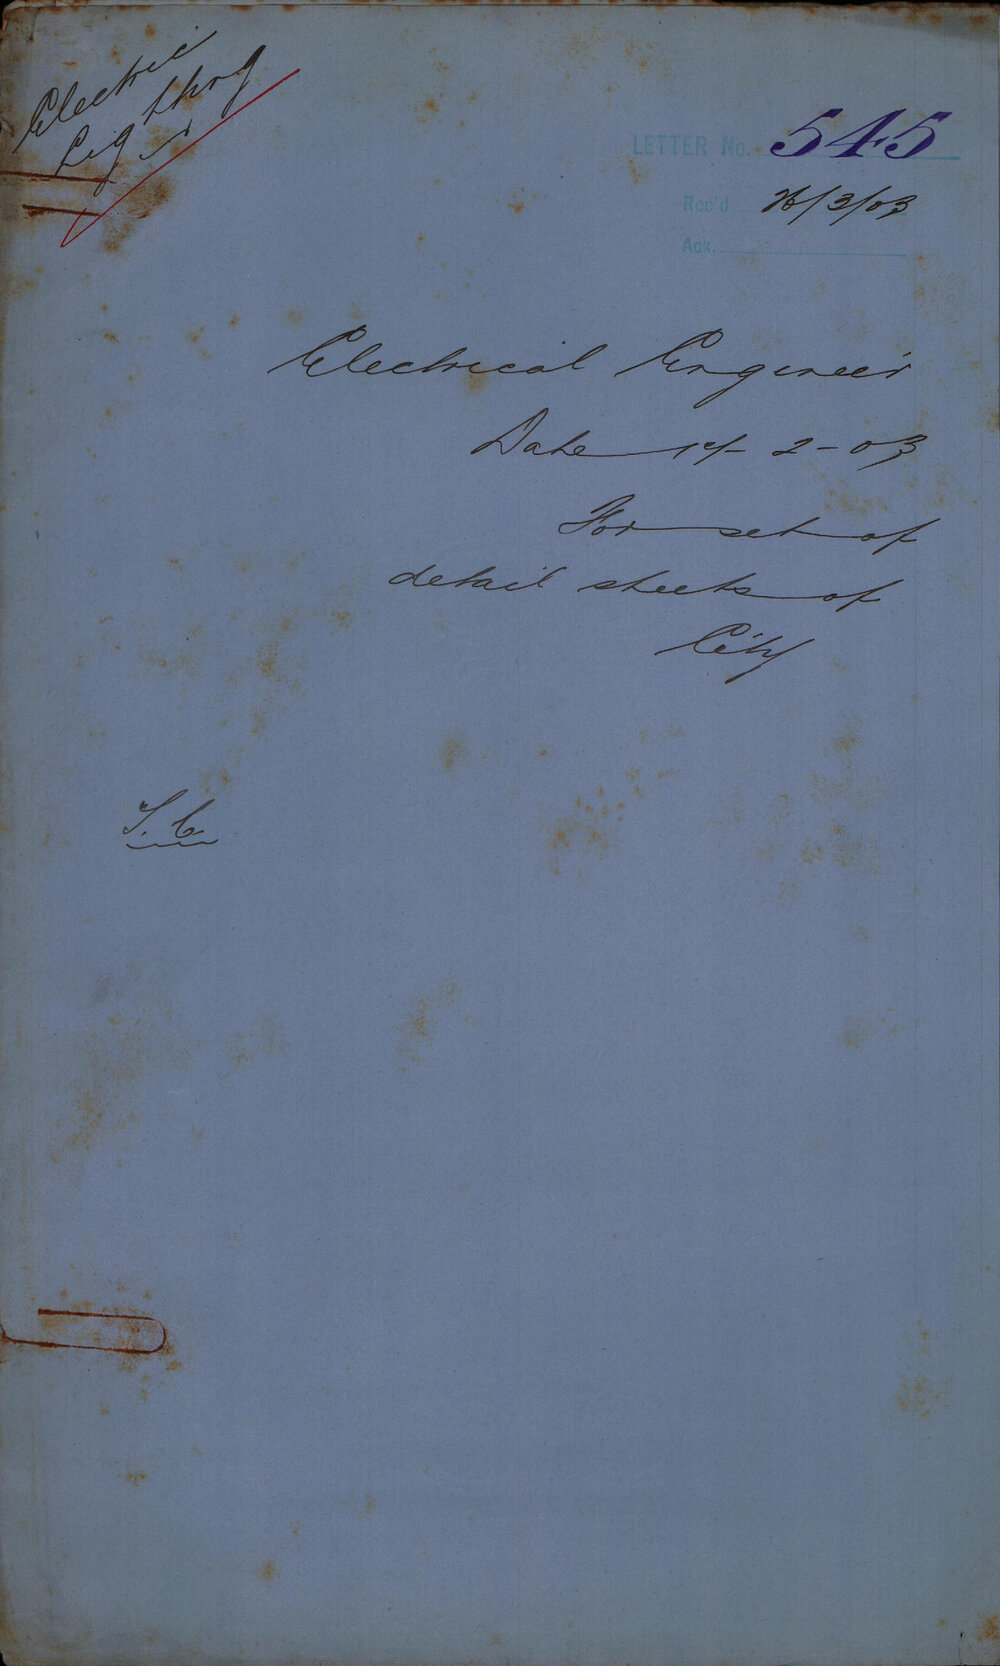 Electric
Lighting
LETTER No. 545
Rec'd 26/3/03
Ack.
Electrical Engineer
Date 14-2-03
For set of
detail sheets of
City
T.C.